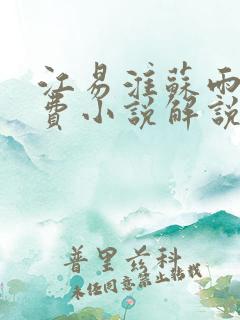 江易淮蘇雨
費小說解說
普里兹科
未经同意禁止转载